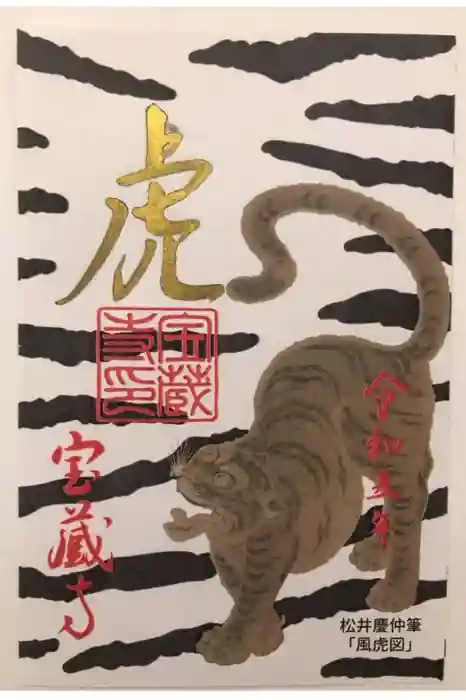 虎
宝蔵寺印
令和五年
宝蔵寺
松井慶仲筆
「風虎図」